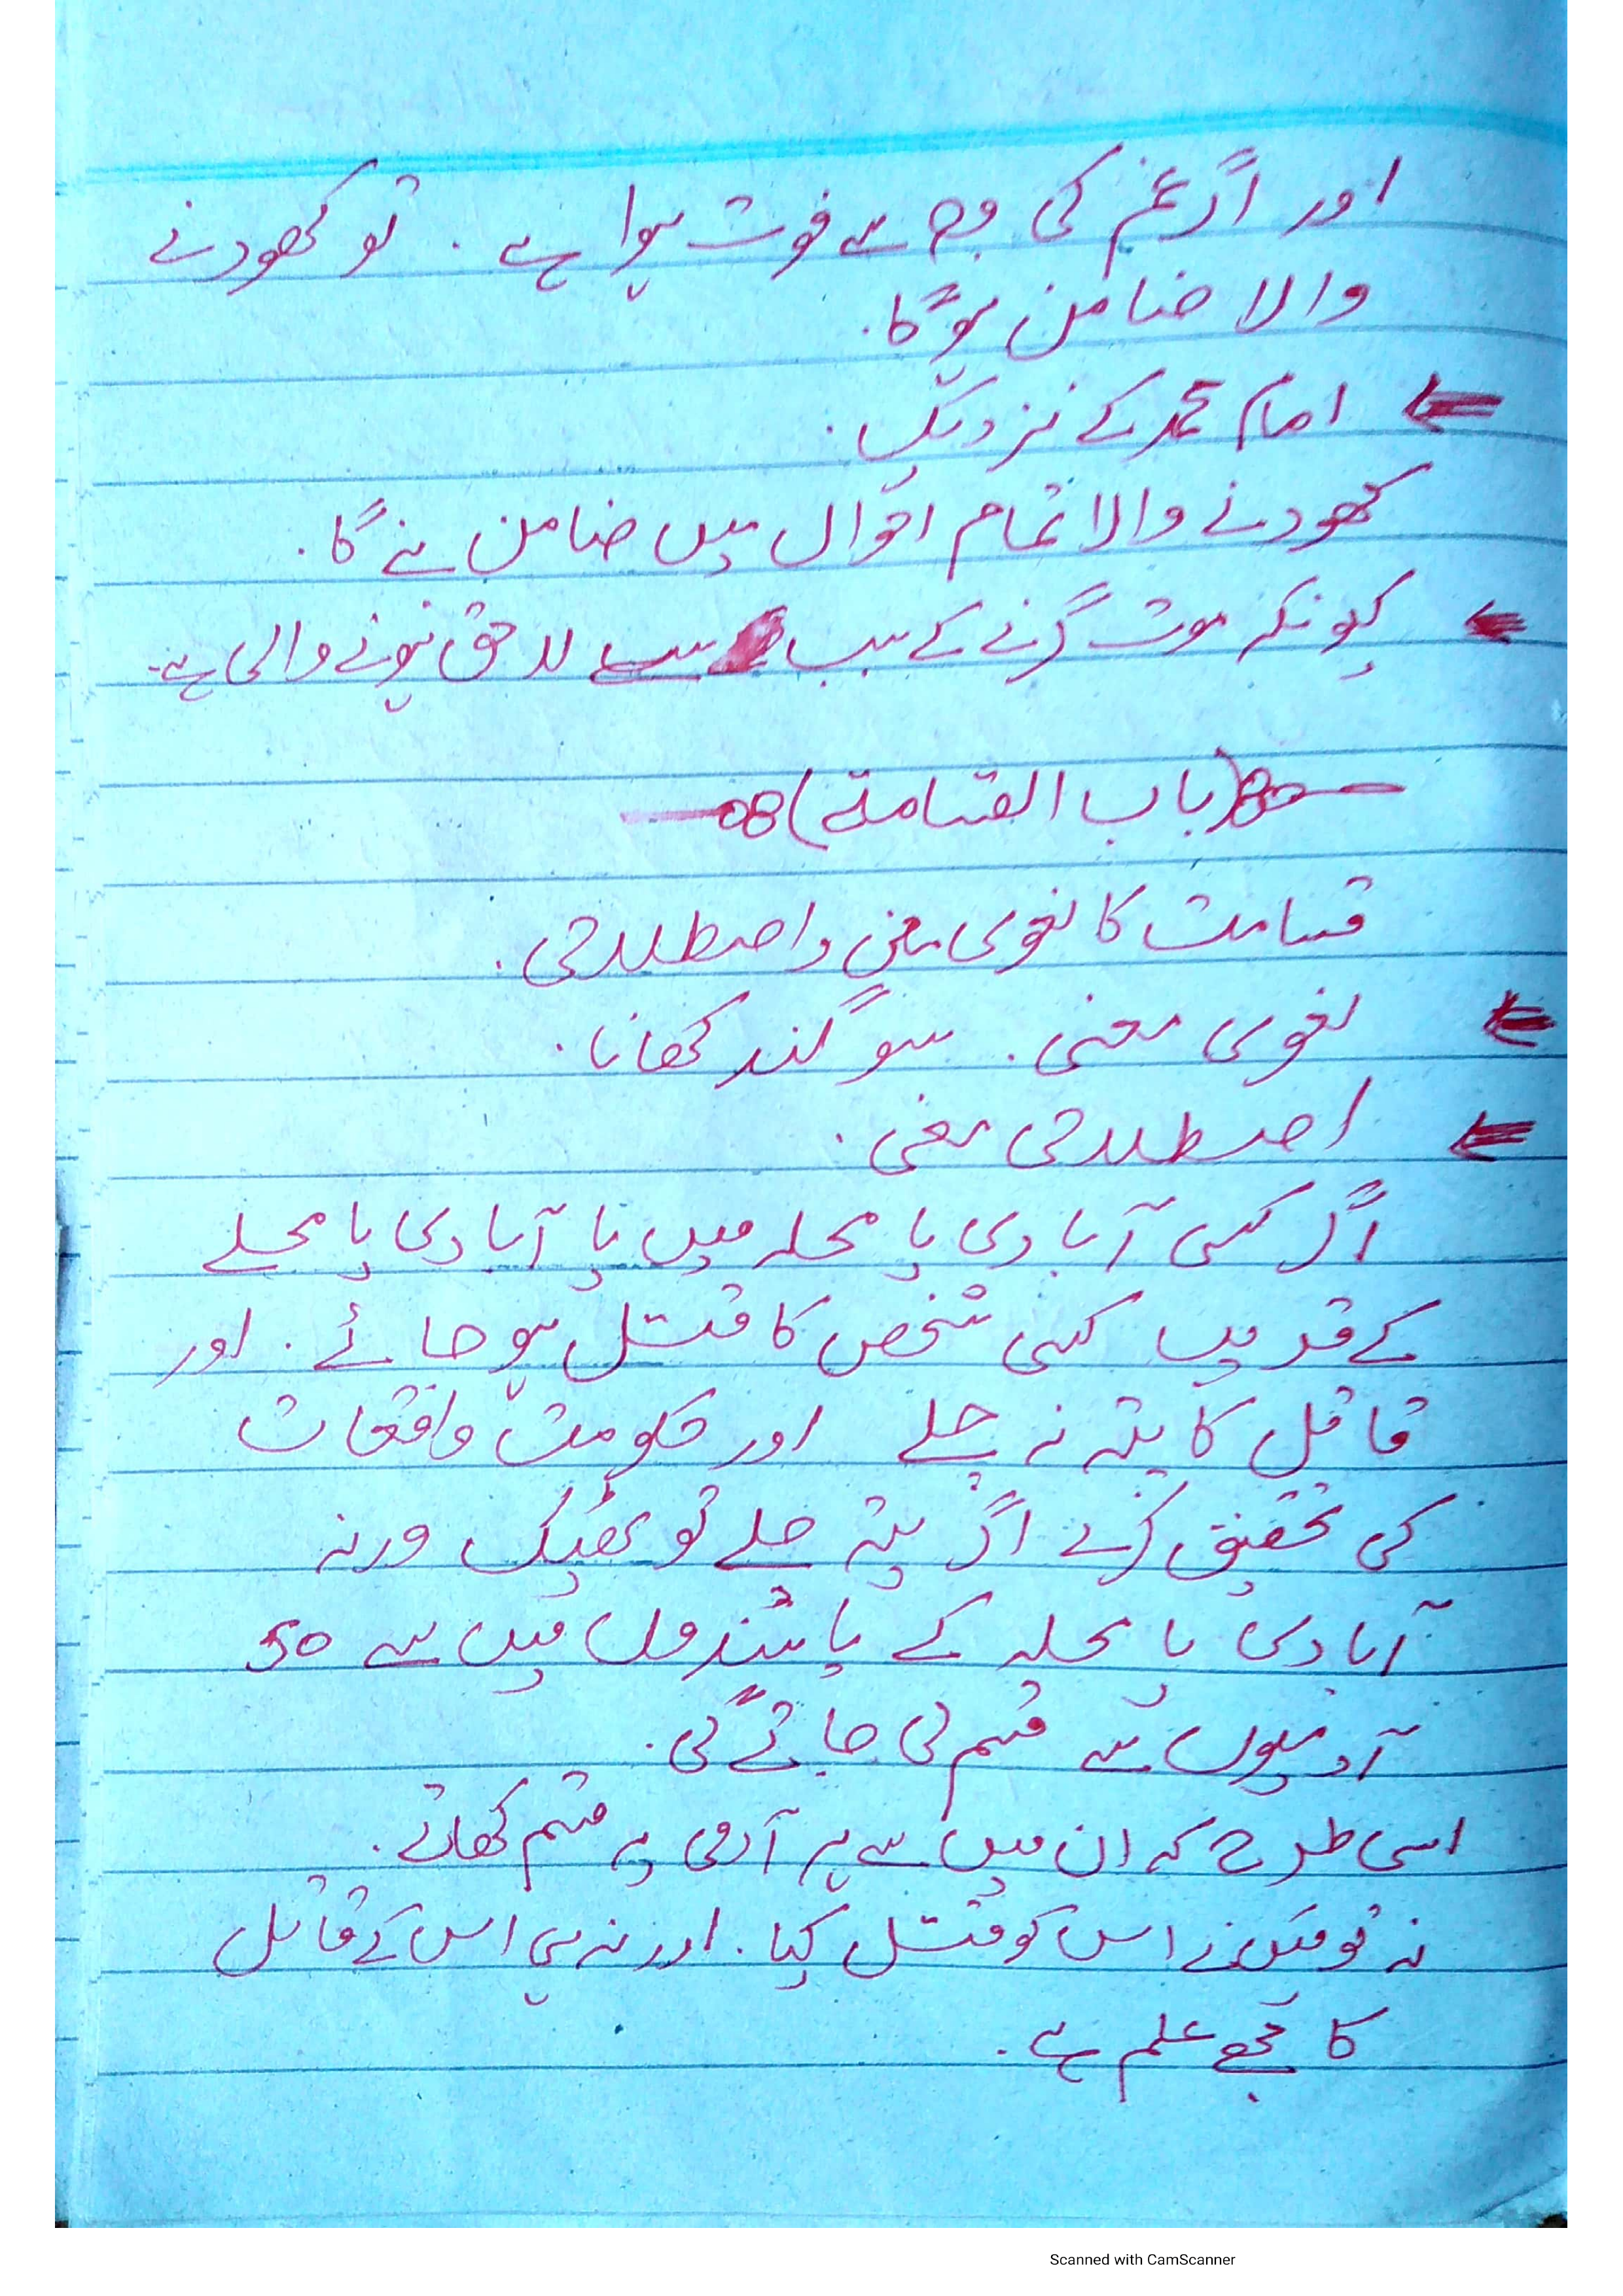 اور اگر غم کی وجہ سے فوت ہوا ہے ۔ تو کھودنے
والا ضامن ہوگا ۔
امام محمد کے نزدیک ۔
کھودنے والا تمام احوال میں ضامن بنے گا ۔
کیونکہ موت گرنے کے سبب سے لاحق ہونے والی ہے ۔
(باب القسامة)
قسامت کا لغوی معنی و اصطلاحی ۔
لغوی معنی ۔ سوگند کھانا ۔
اصطلاحی معنی ۔
اگر کسی آبادی یا محلہ میں یا آبادی یا محلے
کے قریب کسی شخص کا قتل ہو جائے ۔ اور
قاتل کا پتہ نہ چلے اور حکومت واقعات
کی تحقیق کرے اگر پتہ چلے تو ٹھیک ورنہ
آبادی یا محلہ کے باشندوں میں سے 50
آدمیوں سے قسم لی جائے گی ۔
اسی طرح کہ ان میں سے ہر آدمی یہ قسم کھائے ۔
نہ تو میں نے اس کو قتل کیا ۔ اور نہ ہی اس کے قاتل
کا مجھے علم ہے ۔
Scanned with CamScanner